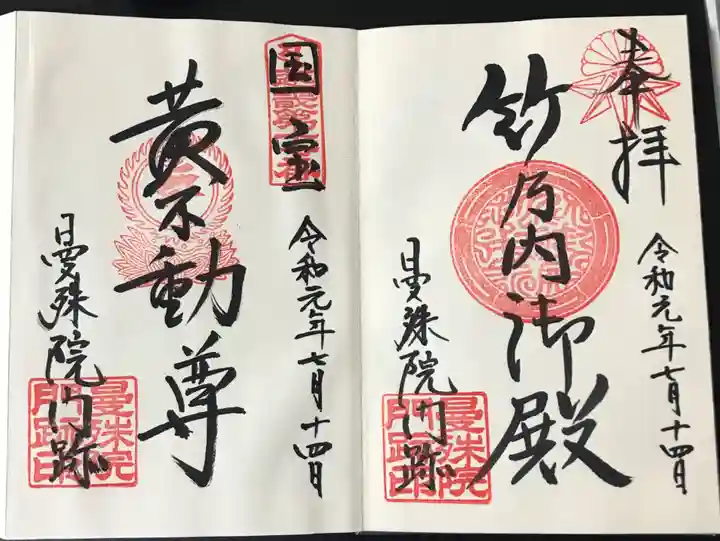 奉拝
竹乃内御殿
令和元年七月十四日
曼殊院門跡
曼殊院門跡印
国宝
黄不動尊
令和元年七月十四日
曼殊院門跡
曼殊院門跡印